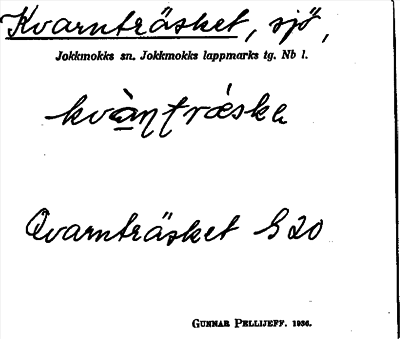 Kvarnträsket, sjö,
Jokkmokks sn. Jokkmokks lappmarks tg. Nb l.
kvàṇtræ̀skɐ
Qvarnträsket G 20
GUNNAR PELLIJEFF. 1936.